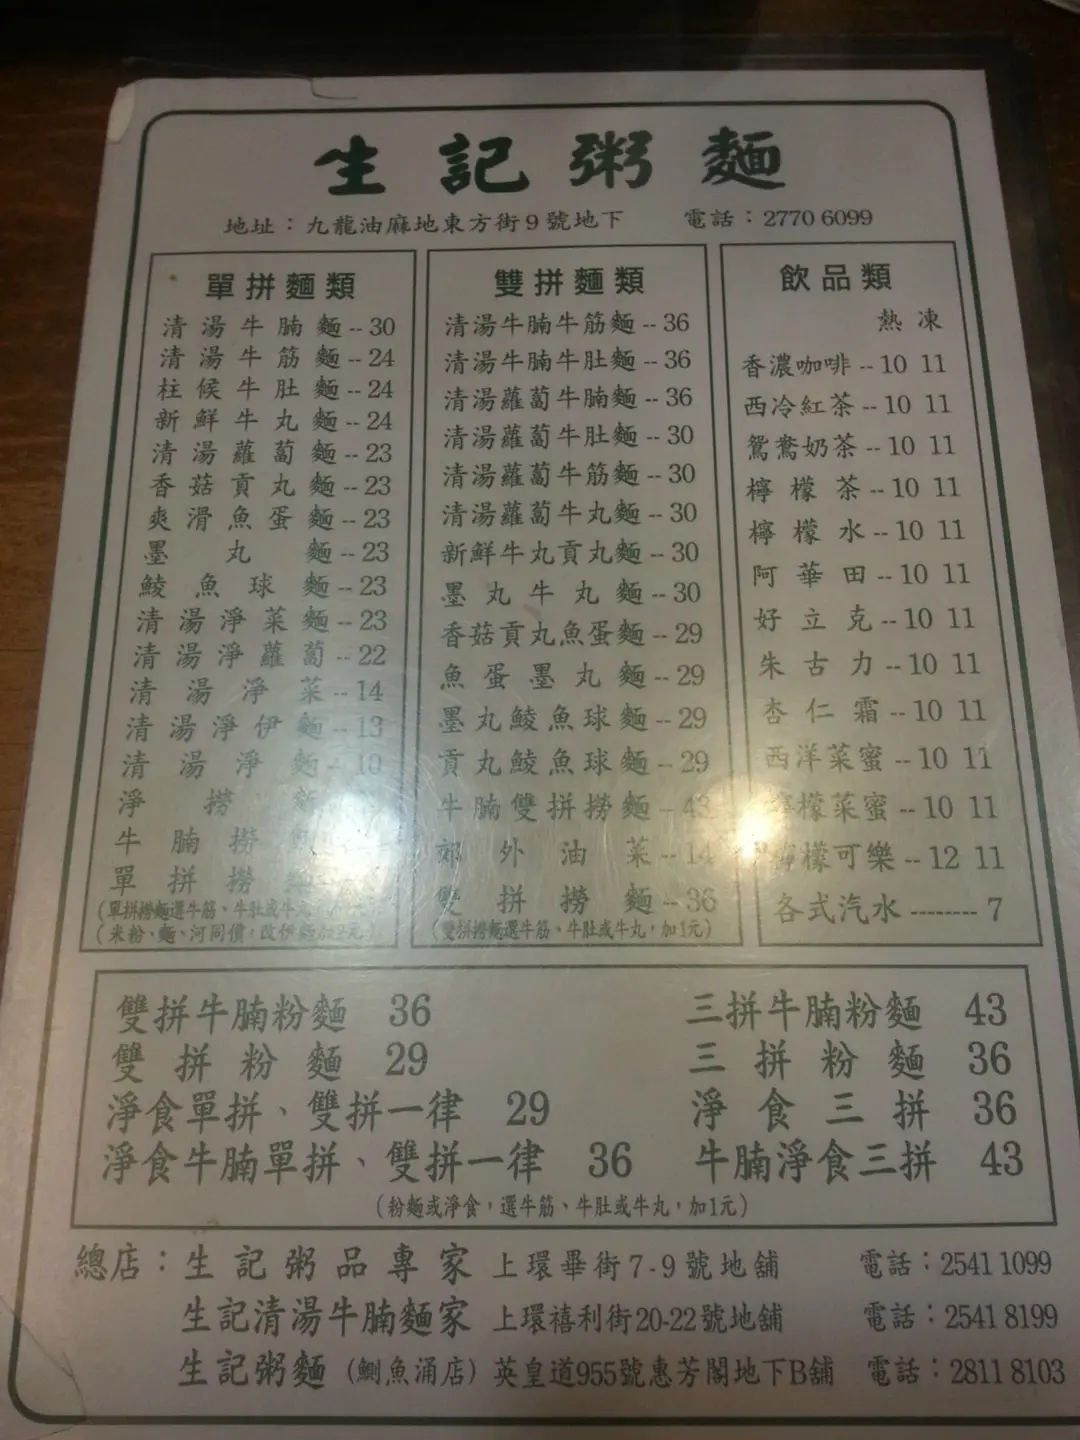 生記粥麵
地址：九龍油麻地東方街9號地下 電話：2770 6099
單拼麵類
清湯牛腩麵--30
清湯牛筋麵--24
柱候牛肚麵--24
新鮮牛丸麵--24
清湯蘿蔔麵--23
香菇貢丸麵--23
爽滑魚蛋麵--23
墨丸麵--23
鯪魚球麵--23
清湯淨菜麵--23
清湯淨蘿蔔--22
清湯淨菜--14
清湯淨伊麵--13
清湯淨麵--10
淨撈
牛腩撈
單拼撈
(單拼撈麵選牛筋、牛肚或牛丸
(米粉、麵、河同價，改伊麵加2元)
雙拼麵類
清湯牛腩牛筋麵--36
清湯牛腩牛肚麵--36
清湯蘿蔔牛腩麵--36
清湯蘿蔔牛肚麵--30
清湯蘿蔔牛筋麵--30
清湯蘿蔔牛丸麵--30
新鮮牛丸貢丸麵--30
墨丸牛丸麵--30
香菇貢丸魚蛋麵--29
魚蛋墨丸麵--29
墨丸鯪魚球麵--29
貢丸鯪魚球麵--29
牛腩雙拼撈麵--43
郊外油菜--14
雙拼撈麵--36
(雙拼撈麵選牛筋、牛肚或牛丸，加1元)
飲品類
熱 凍
香濃咖啡--10 11
西冷紅茶--10 11
鴛鴦奶茶--10 11
檸檬茶--10 11
檸檬水--10 11
阿華田--10 11
好立克--10 11
朱古力--10 11
杏仁霜--10 11
西洋菜蜜--10 11
檸檬菜蜜--10 11
檸檬可樂--12 11
各式汽水--------7
雙拼牛腩粉麵 36
雙拼粉麵 29
淨食單拼、雙拼一律 29
淨食牛腩單拼、雙拼一律 36
三拼牛腩粉麵 43
三拼粉麵 36
淨食三拼 36
牛腩淨食三拼 43
(粉麵或淨食，選牛筋、牛肚或牛丸，加1元)
總店：生記粥品專家 上環畢街7-9號地舖 電話：2541 1099
生記清湯牛腩麵家 上環禧利街20-22號地舖 電話：2541 8199
生記粥麵（鰂魚涌店）英皇道955號惠芳閣地下B舖 電話：2811 8103